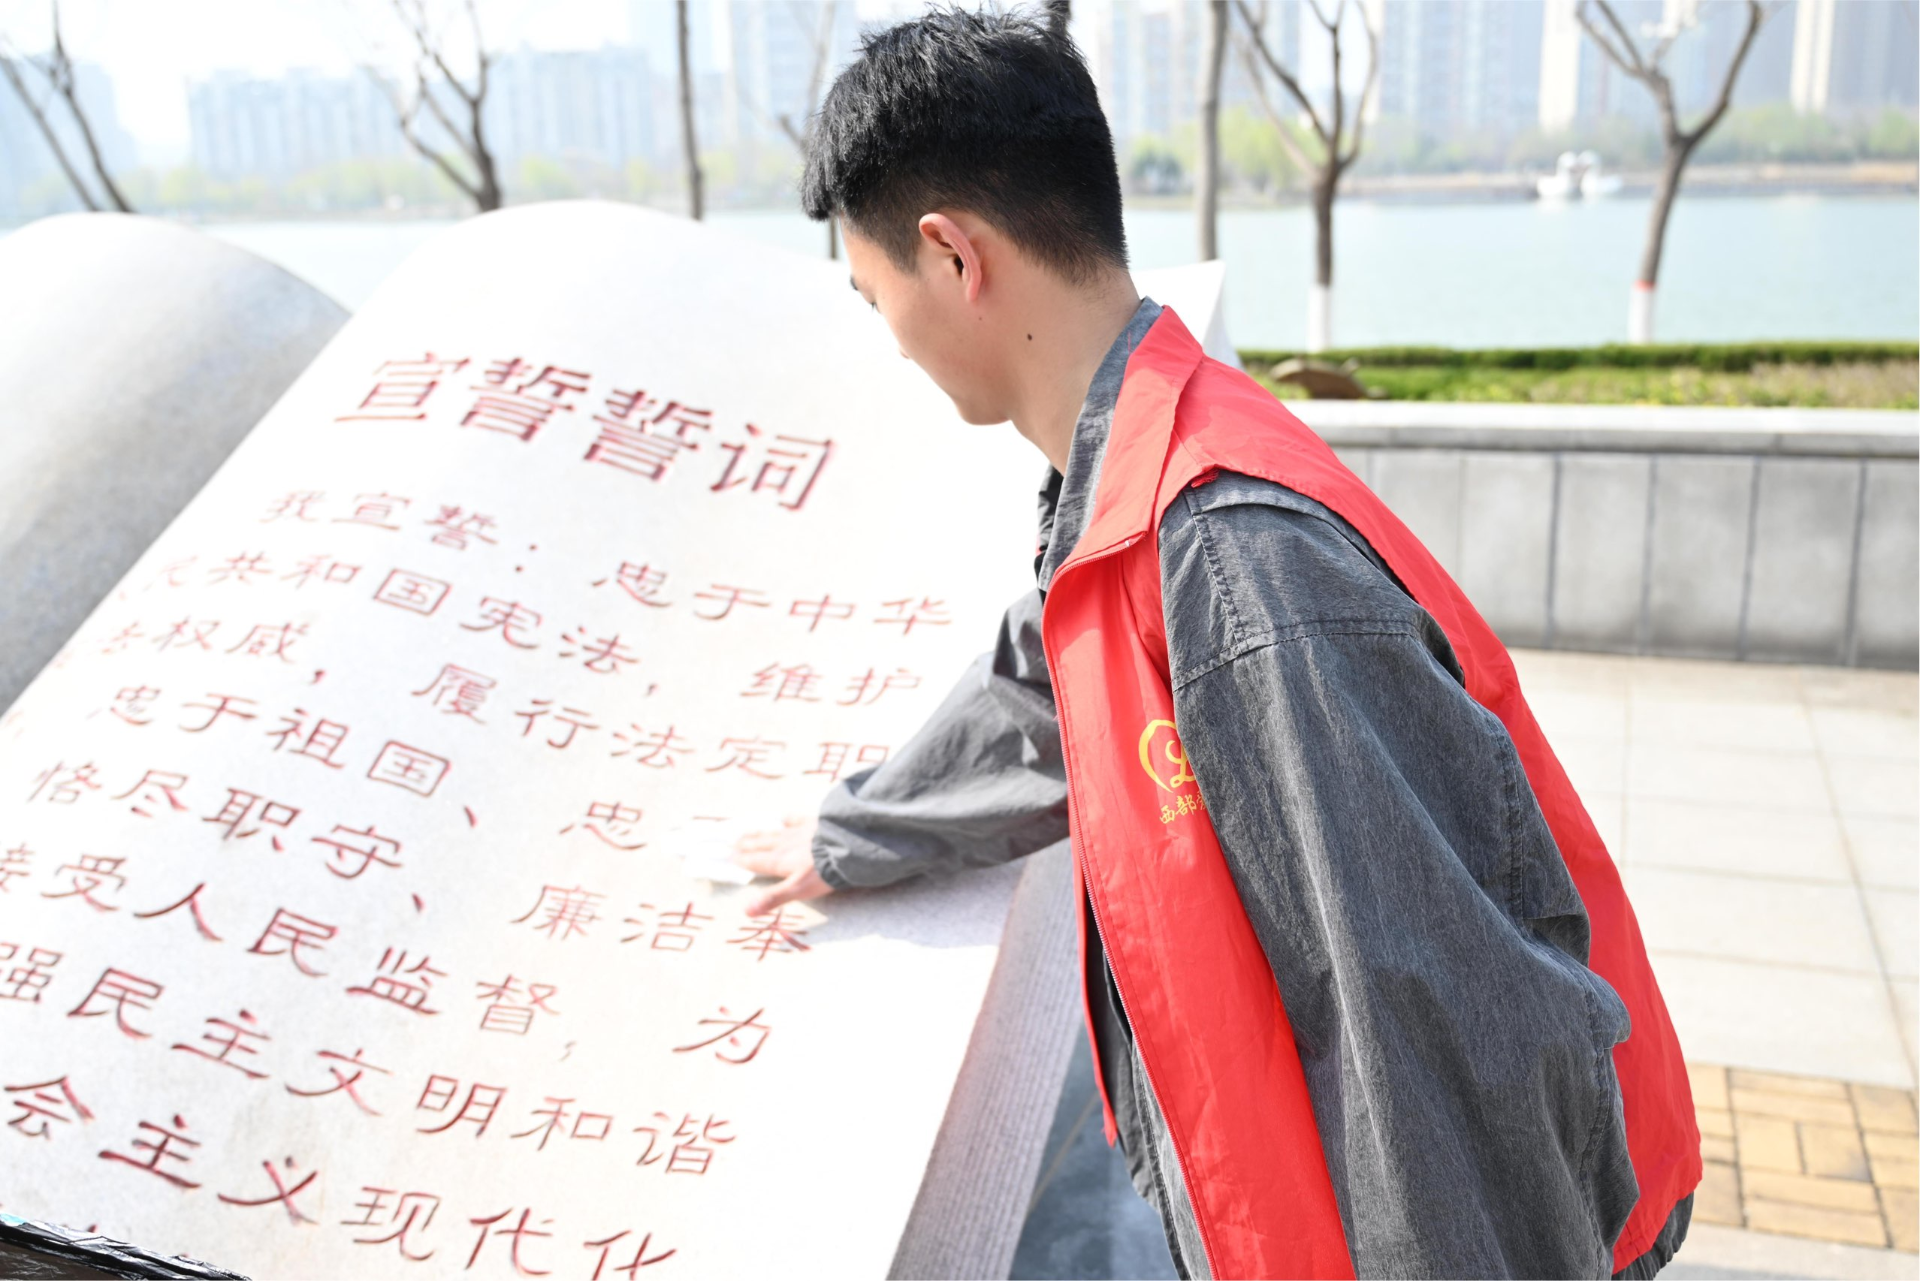 宣誓誓词
我宣誓：忠于中华
民共和国宪法，维护
法权威，履行法定职
忠于祖国、忠
恪尽职守、廉洁奉
接受人民监督，为
强民主文明和谐
会主义现代化
西部